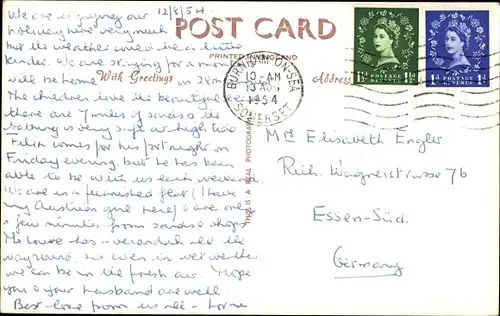 We are enjoying our 12/8/54
holiday here very much
but the weather could be a little
kinder. We are staying for a month
will be home on 28th
The children love the beautiful sea
there are 7 miles of sands & the
bathing is very safe at high tide
comes for his fortnight on
Friday evening, but he has been
able to be with us each weekend
We are in a furnished flat (I have
my Austrian girl here) & are only
a few minutes from sands & shops
The house has a verandah all the
way round, so even in wet weather
we can be in the fresh air. Hope
you & your husband are well
Best love from us all - Lorna
POST CARD
PRINTED IN ENGLAND
With Greetings
Address
THIS IS A REAL PHOTOGRAPH
BURNHAM-ON-SEA
10-AM
13 AUG
1954
SOMERSET
1½D POSTAGE REVENUE 1½D
1D POSTAGE REVENUE 1D
Elisabeth Engler
Rich. Wagnerstrasse 76
Essen-Süd.
Germany